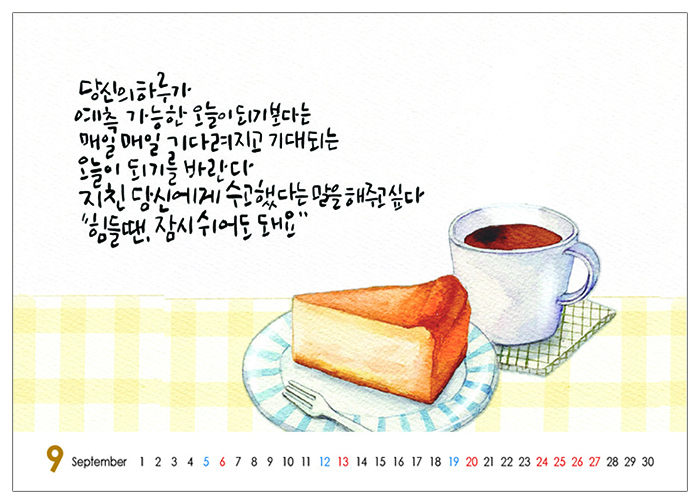 당신의 하루가
예측 가능한 오늘이 되기보다는
매일 매일 기다려지고 기대되는
오늘이 되기를 바란다
지친 당신에게 수고했다는 말을 해주고 싶다
"힘들땐, 잠시 쉬어도 돼요"
9 September 1 2 3 4 5 6 7 8 9 10 11 12 13 14 15 16 17 18 19 20 21 22 23 24 25 26 27 28 29 30